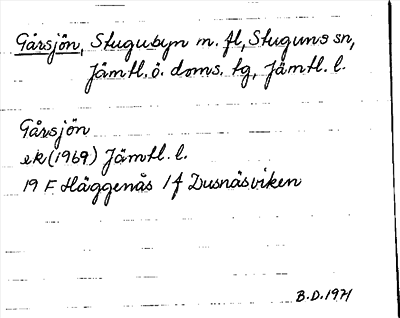 Gåusjön, Stugubyn m. fl, Stuguns sn,
Jämtl. ö. doms. tg, Jämtl. l.
Gåusjön
ek (1969) Jämtl. l.
19 F Häggenås 1 f Dusnäsviken
B.D. 1971